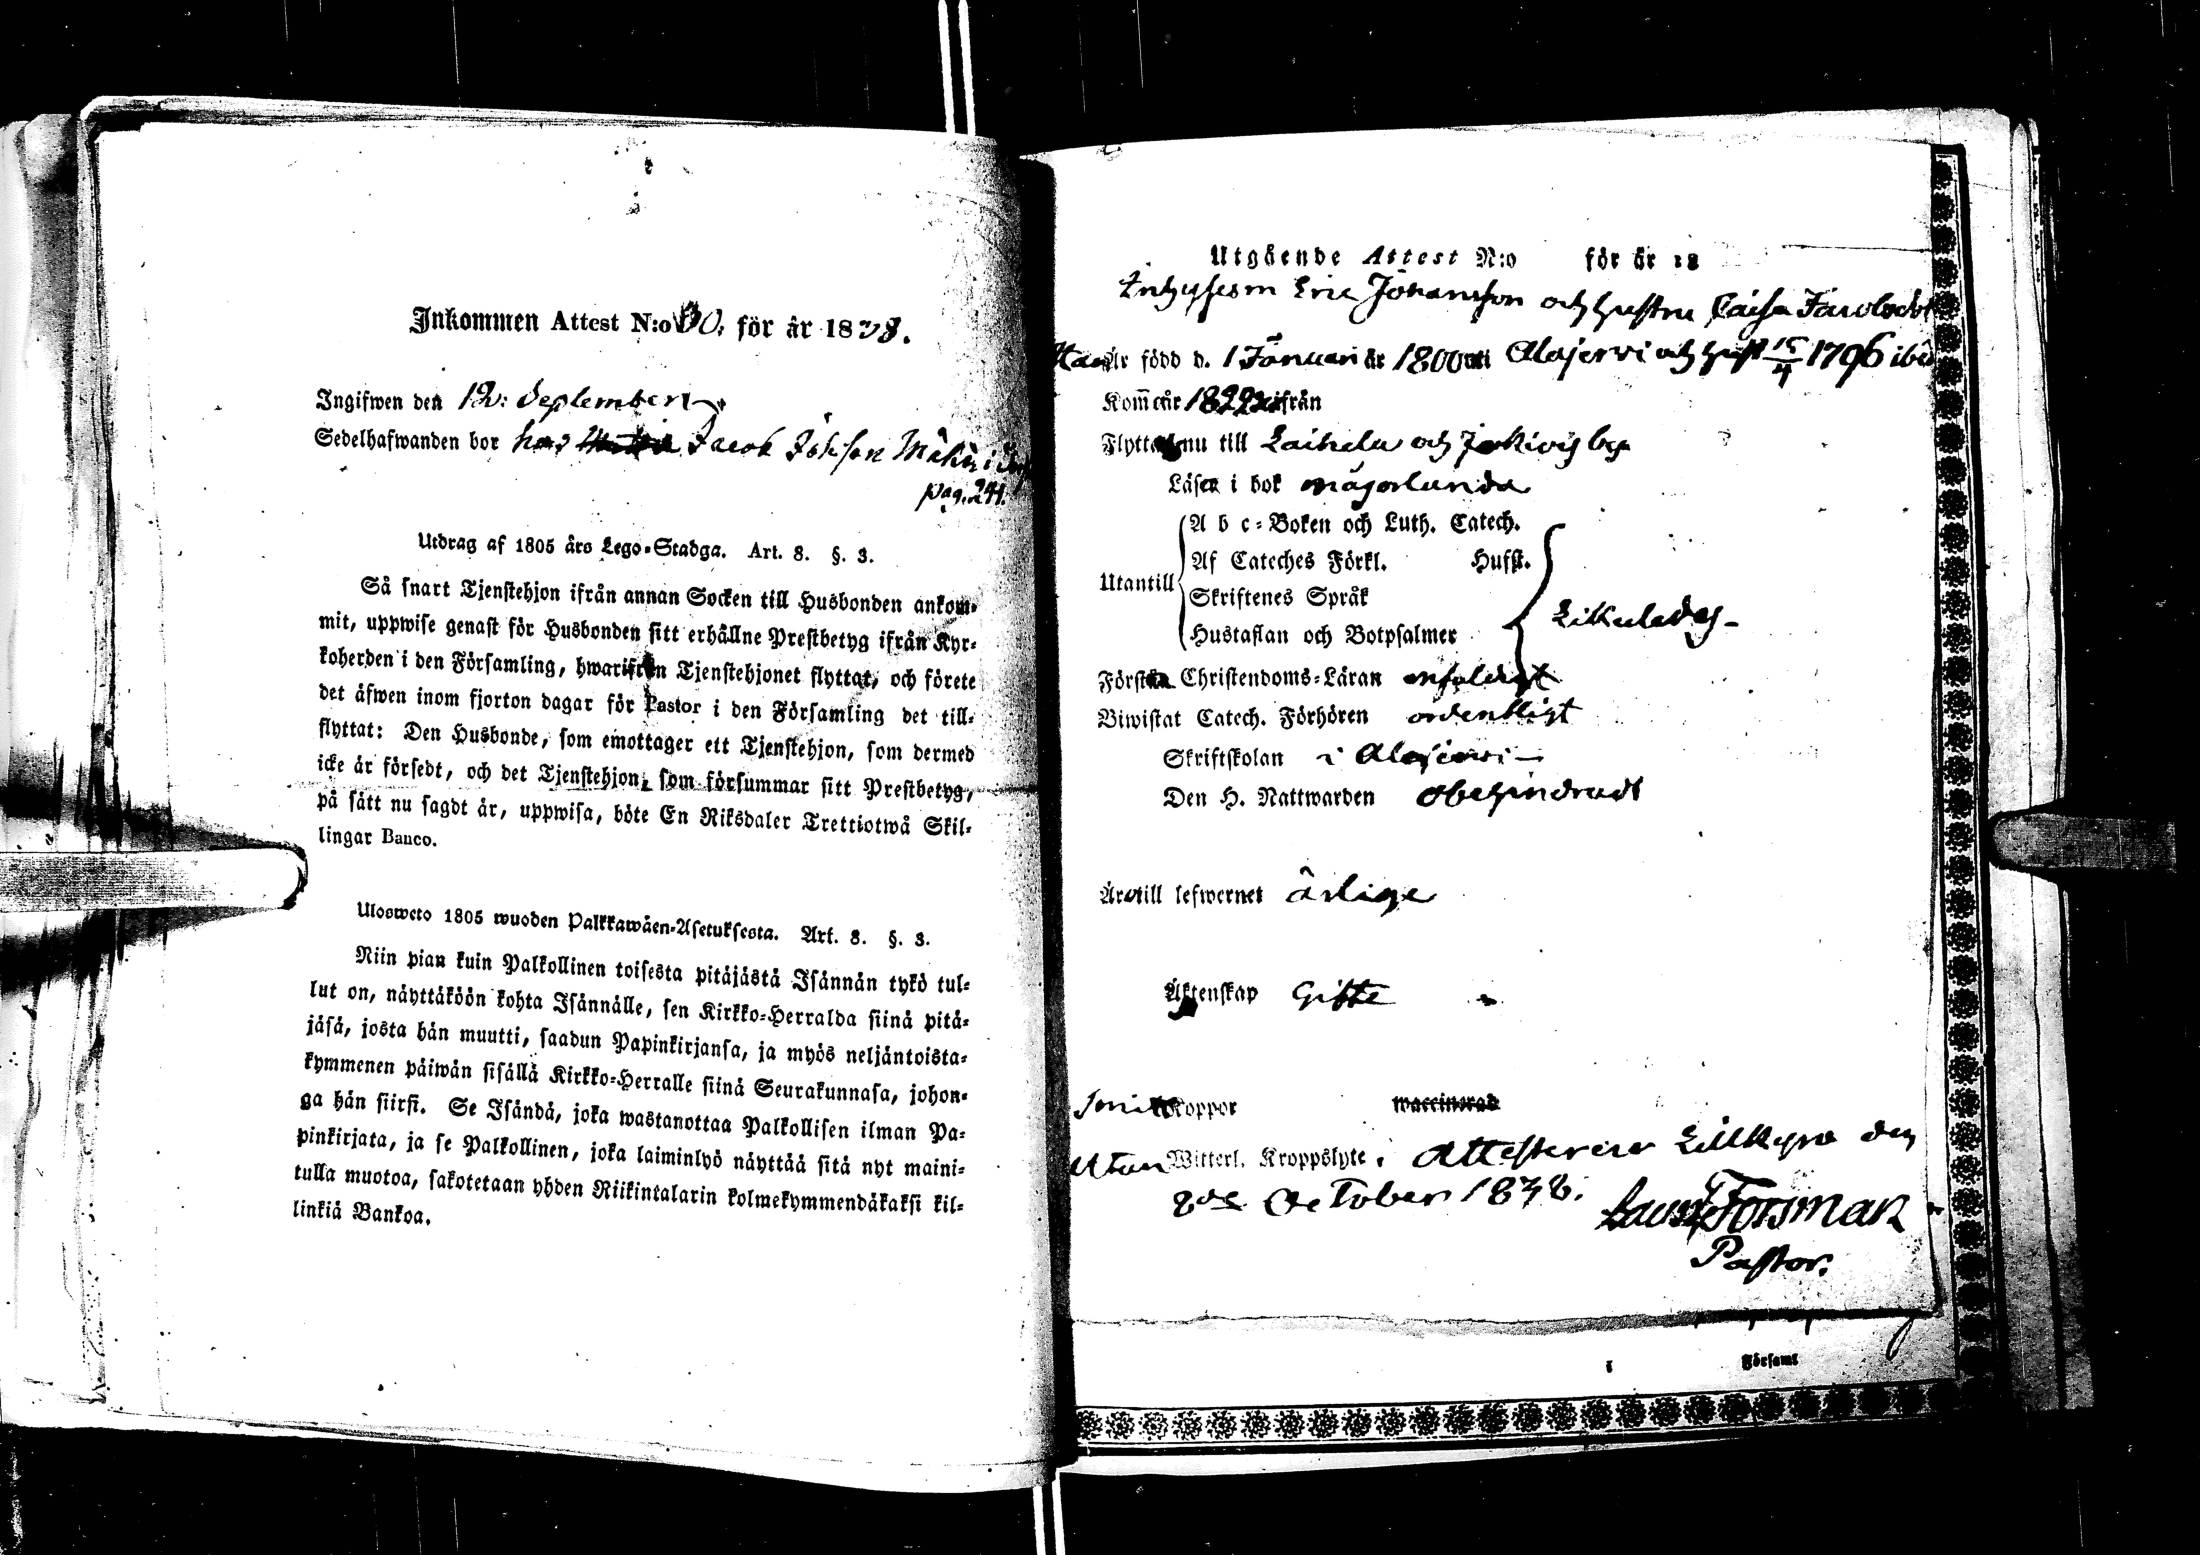 Inkommen Attest N:o 30. för år 1838.
Ingifwen den 12: September
Sedelhafwanden bor hos Jacob Johsson Mäki i
pag. 241.
Utdrag af 1805 års Lego-Stadga. Art. 8. §. 3.
Så snart Tjenstehjon ifrån annan Socken till Husbonden ankom-
mit, uppwise genast för Husbonden sitt erhållne Prestbetyg ifrån Kyr-
koherden i den Församling, hwarifrån Tjenstehjonet flyttat, och förete
det äfwen inom fjorton dagar för Pastor i den Församling det till-
flyttat: Den Husbonde, som emottager ett Tjenstehjon, som dermed
icke är försedt, och det Tjenstehjon, som försummar sitt Prestbetyg,
på sätt nu sagdt är, uppwisa, böte En Riksdaler Trettiotwå Skil-
lingar Banco.
Ulosweto 1805 wuoden Palkkawäen-Asetuksesta. Art. 8. §. 3.
Niin pian kuin Palkollinen toisesta pitäjästä Isännän tykö tul-
lut on, näyttäköön kohta Isännälle, sen Kirkko-Herralda siinä pitä-
jäsä, josta hän muutti, saadun Papinkirjansa, ja myös neljäntoista-
kymmenen päiwän sisällä Kirkko-Herralle siinä Seurakunnasa, johon-
ga hän siirsi. Se Isändä, joka wastanottaa Palkollisen ilman Pa-
pinkirjata, ja se Palkollinen, joka laiminlyö näyttää sitä nyt maini-
tulla muotoa, sakotetaan yhden Riikintalarin kolmekymmendäkaksi kil-
linkiä Bankoa.
Utgående Attest N:o för år 18
Inhysesm Eric Johansson och hustru Caisa Jacobsdot
Han Är född d. 1 Januari år 1800 uti Alajerwi och hust 15/4 1796 ibid
Kom̄ år 1822 ifrån
Flytta nu till Laihela och Jokiby by
Läsa i bok någorlunda
Utantill
A b c-Boken och Luth. Catech.
Af Cateches Förkl. Husst.
Skriftenes Språk
Hustaflan och Botpsalmer
Likaledes
Förstå Christendoms-Läran enfaldigt
Biwistat Catech. Förhören ordentligt
Skriftskolan i Alajerwi
Den H. Nattwarden obehindradt
Äro till lefwernet ärlige
Äktenskap Gifte
Koppor waccinerad
Utan Witterl. Kroppslyte, Attesterar Lillkyro den
8de October 1838.
Forsman
Pastor.
i Församl